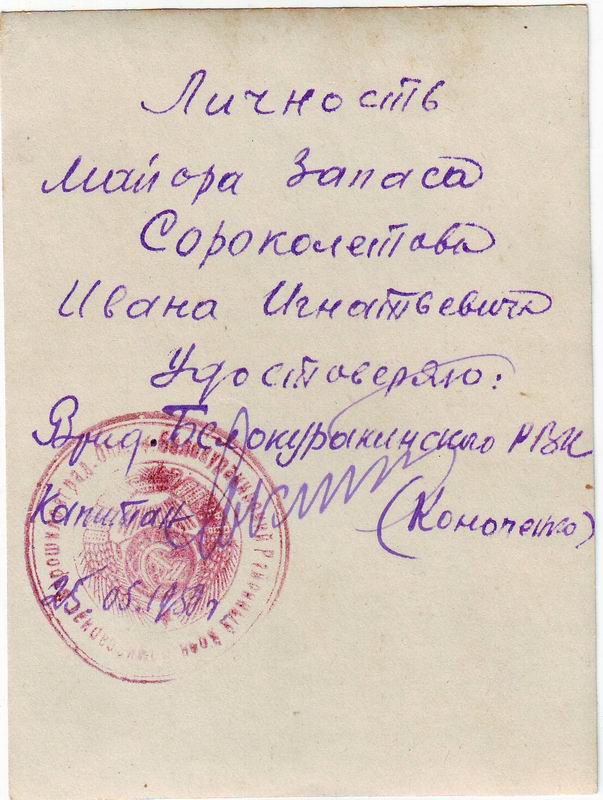 Личность
Майора Запаса
Сороколетова
Ивана Игнатьевича
Удостоверяю:
Врид. Белокуракинского РВК
Капитан (Конопенко)
25 05.1950 г